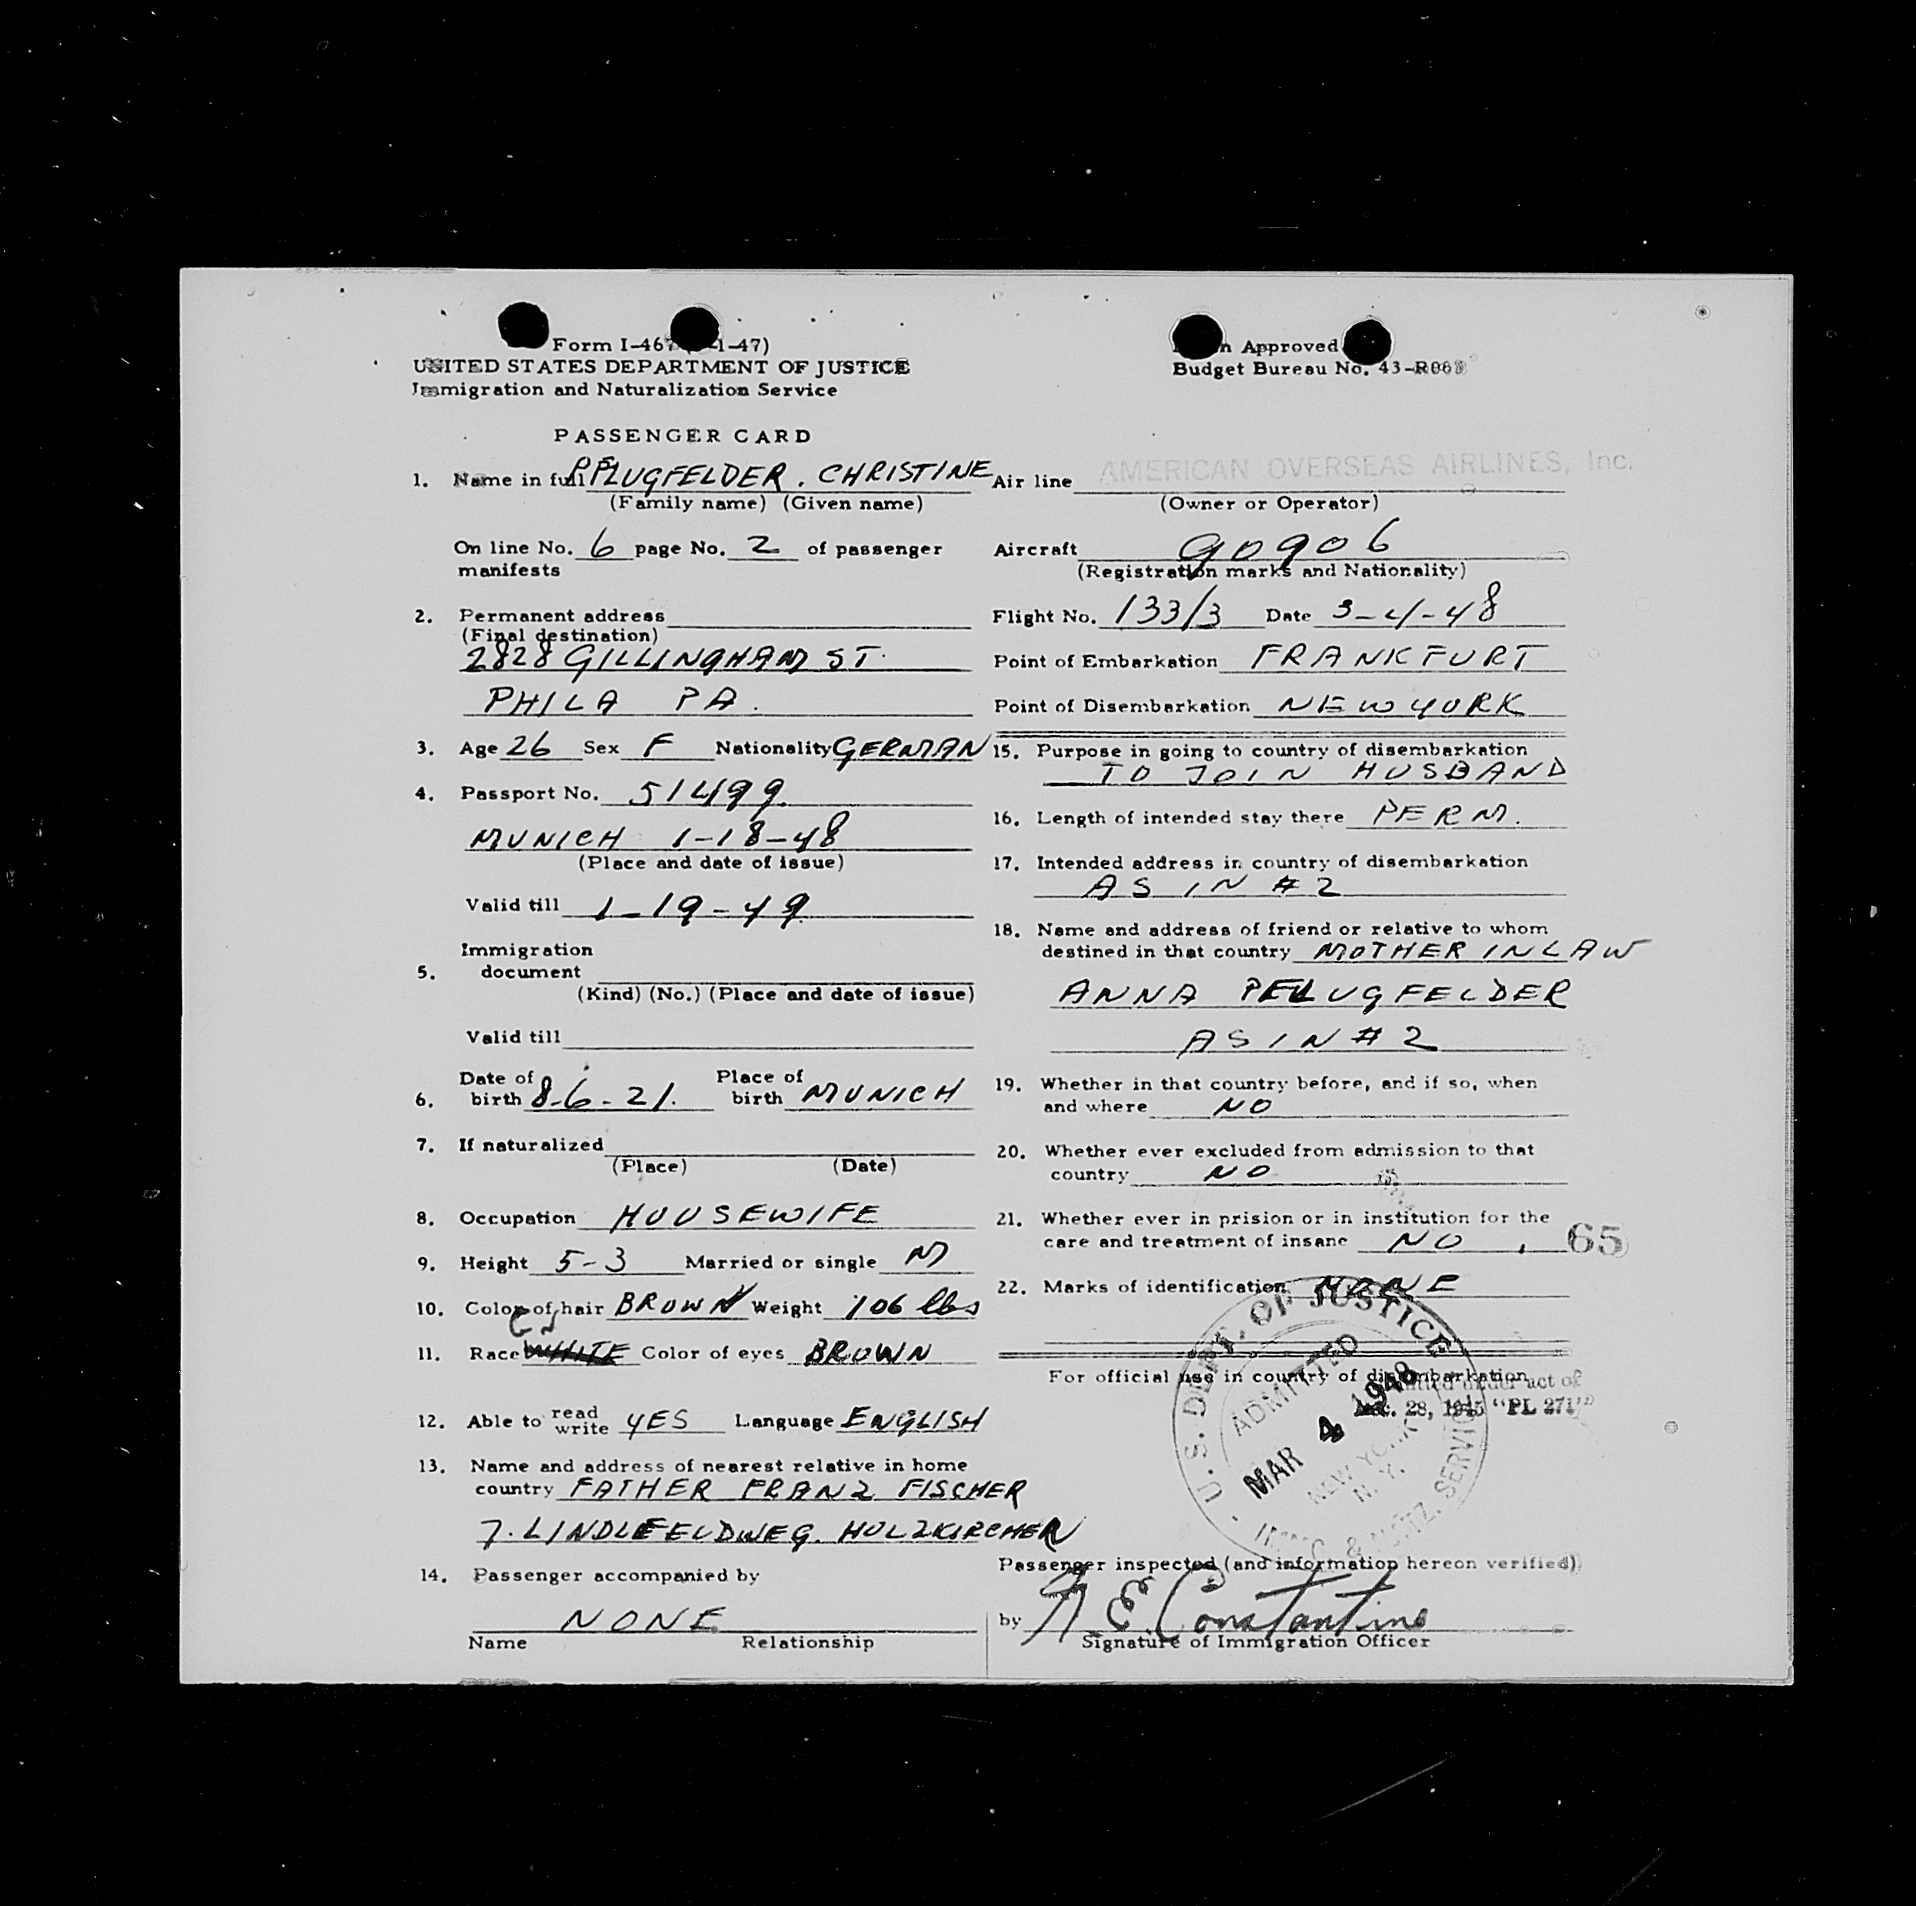 Form I-467 ( -1-47)
UNITED STATES DEPARTMENT OF JUSTICE
Immigration and Naturalization Service
Approved
Budget Bureau No. 43-
PASSENGER CARD
1. Name in full PFLUGFELDER. CHRISTINE
(Family name) (Given name)
On line No. 6 page No. 2 of passenger
manifests
2. Permanent address
(Final destination)
2828 GILLINGHAM ST.
PHILA PA.
3. Age 26 Sex F Nationality GERMAN
4. Passport No. 51499.
MUNICH 1-18-48
(Place and date of issue)
Valid till 1-19-49.
Immigration
5. document
(Kind) (No.) (Place and date of issue)
Valid till
6. Date of birth 8-6-21. Place of birth MUNICH
7. If naturalized
(Place) (Date)
8. Occupation HOUSEWIFE
9. Height 5-3 Married or single M
10. Color of hair BROWN Weight 106 lbs
11. Race WHITE Color of eyes BROWN
12. Able to read write YES Language ENGLISH
13. Name and address of nearest relative in home
country FATHER FRANZ FISCHER
7. LINDLEFELDWEG. HOLZKIRCHEN
14. Passenger accompanied by
NONE
Name Relationship
Air line AMERICAN OVERSEAS AIRLINES, Inc.
(Owner or Operator)
Aircraft 90906
(Registration marks and Nationality)
Flight No. 133/3 Date 3-4-48
Point of Embarkation FRANKFURT
Point of Disembarkation NEW YORK
15. Purpose in going to country of disembarkation
TO JOIN HUSBAND
16. Length of intended stay there PERM.
17. Intended address in country of disembarkation
AS IN #2
18. Name and address of friend or relative to whom
destined in that country MOTHER IN LAW
ANNA PFLUGFELDER
AS IN #2
19. Whether in that country before, and if so, when
and where NO
20. Whether ever excluded from admission to that
country NO
21. Whether ever in prision or in institution for the
care and treatment of insane NO 65
22. Marks of identification NONE
For official use in country of disembarkation
under act of
Dec. 28, 1945 "PL 271"
U.S. DEPT. OF JUSTICE
ADMITTED
MAR 4 1948
NEW YORK
N. Y.
IMMIG. & NATZ. SERVICE
Passenger inspected (and information hereon verified)
by N E Constantine
Signature of Immigration Officer